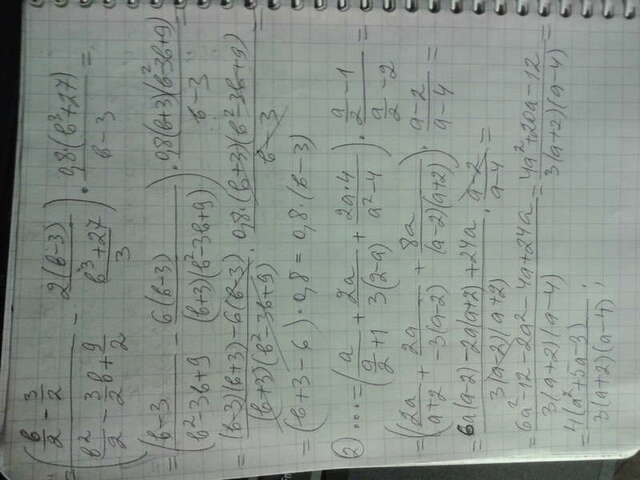 = ((b/2 - 3/2)/(b²/2 - 3b/2 + 9/2) - 2(b-3)/((b³+27)/3)) · 0,8(b³+27)/(b-3) =
= ((b-3)/(b²-3b+9) - 6(b-3)/((b+3)(b²-3b+9))) · 0,8(b+3)(b²-3b+9)/(b-3) =
= ((b-3)(b+3)-6(b-3))/((b+3)(b²-3b+9)) · 0,8·(b+3)(b²-3b+9)/(b-3) =
= (b+3-6)·0,8 = 0,8·(b-3)
2) ... = (a/(a/2+1) + 2a/(3(2-a)) + 2a·4/(a²-4)) · (a/2-1)/(a/2-2) =
= (2a/(a+2) + 2a/(-3(a-2)) + 8a/((a-2)(a+2))) · (a-2)/(a-4) =
= (6a(a-2)-2a(a+2)+24a)/(3(a-2)(a+2)) · (a-2)/(a-4) =
= (6a²-12-2a²-4a+24a)/(3(a+2)(a-4)) = (4a²+20a-12)/(3(a+2)(a-4)) =
= 4(a²+5a-3)/(3(a+2)(a-4));